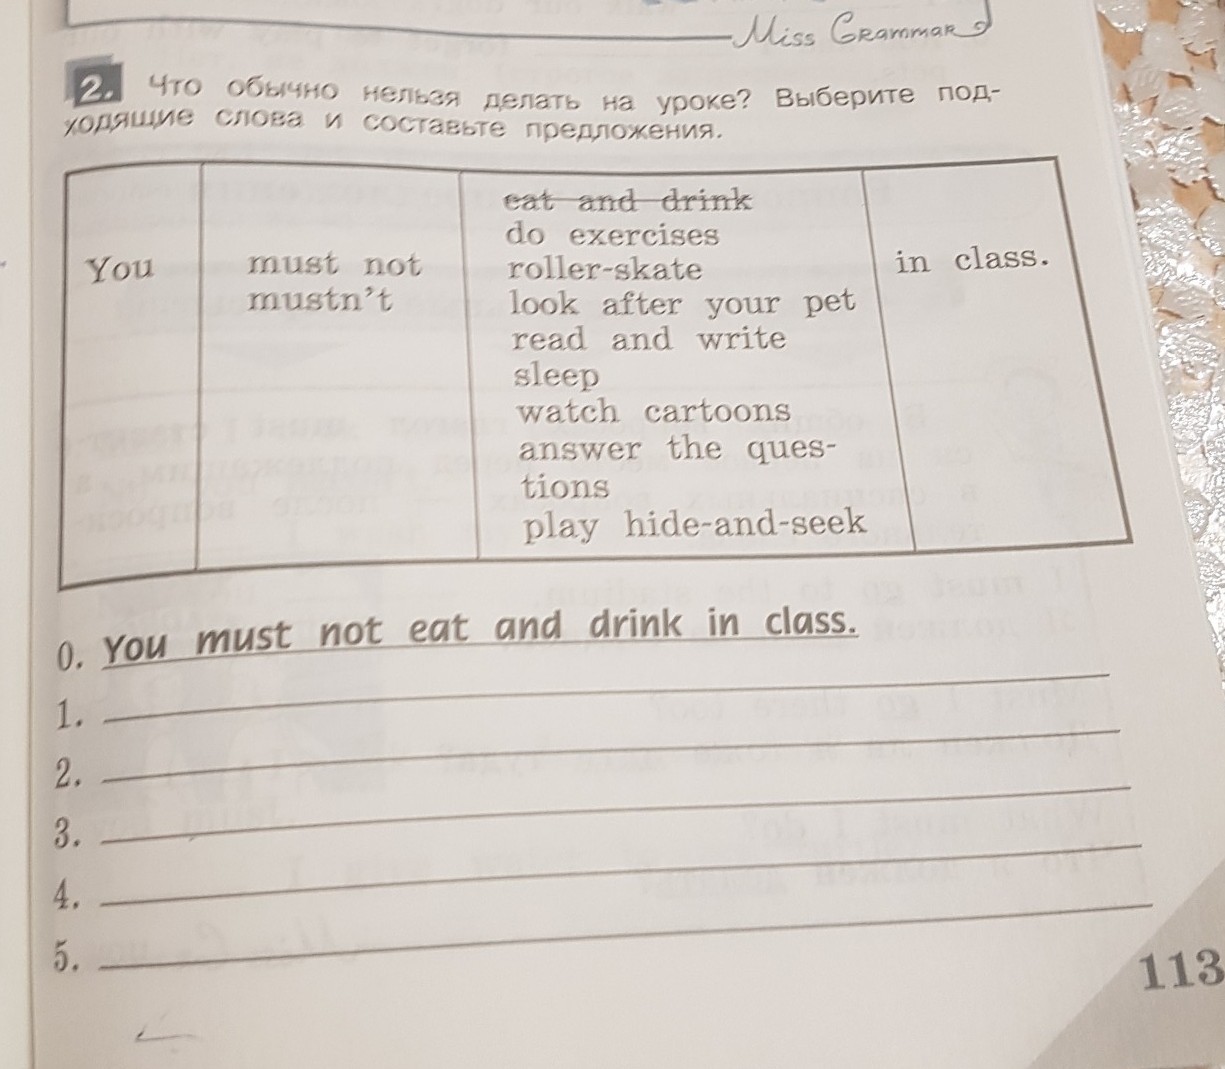 Miss Grammar
2. Что обычно нельзя делать на уроке? Выберите под-
ходящие слова и составьте предложения.
eat and drink
do exercises
You must not roller-skate in class.
mustn't look after your pet
read and write
sleep
watch cartoons
answer the ques-
tions
play hide-and-seek
0. You must not eat and drink in class.
1.
2.
3.
4.
5.
113